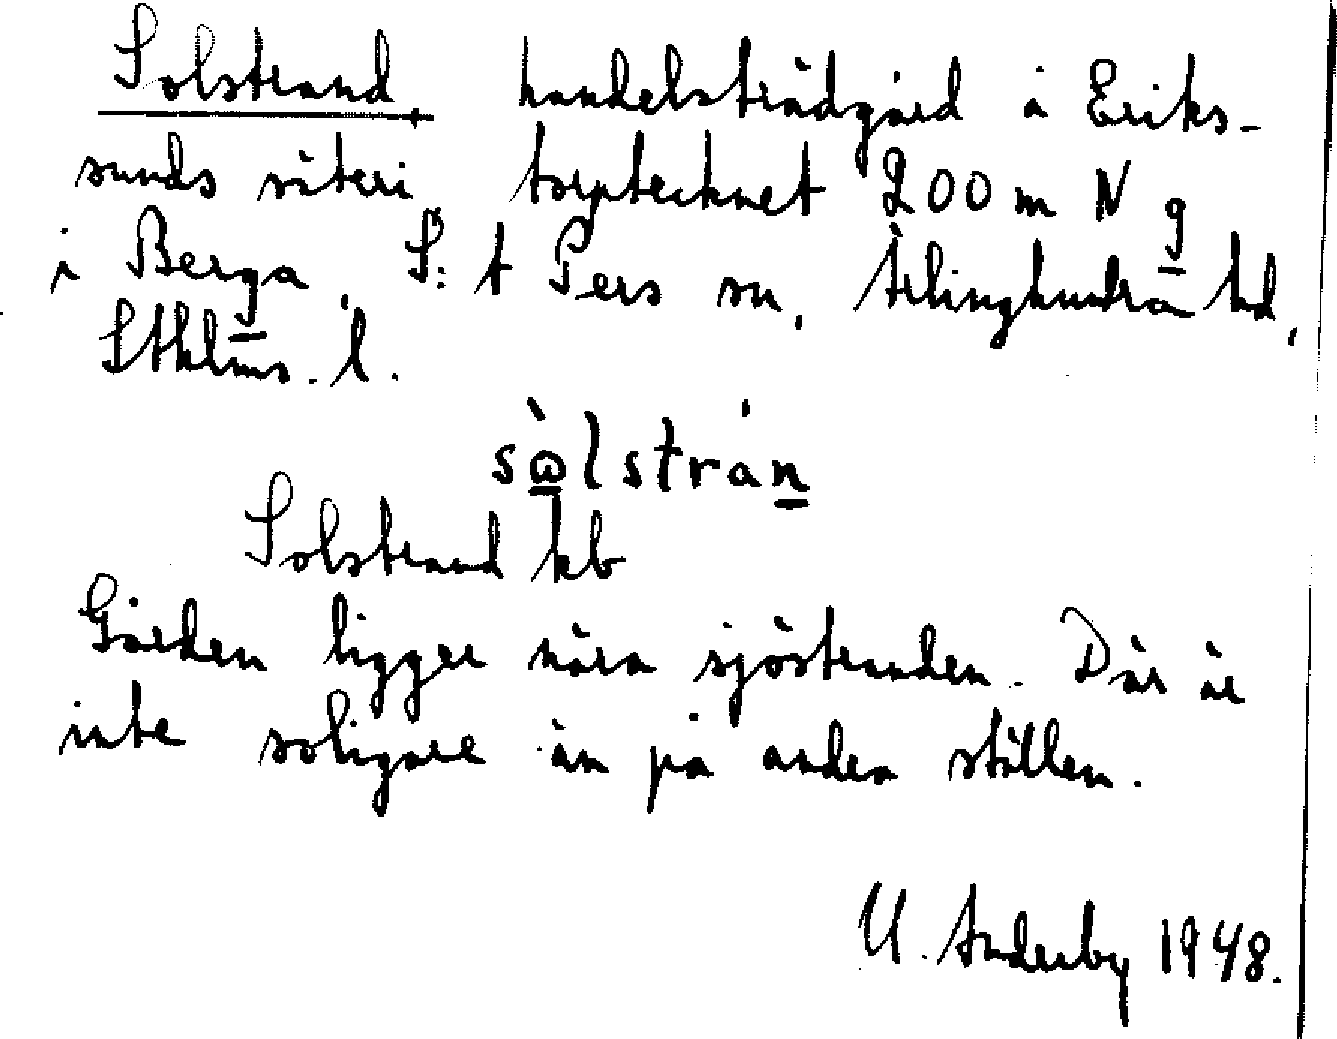 Solstrand, handelsträdgård å Eriks-
sunds säteri torptecknet 200 m N g
i Berga, S:t Pers sn, Ärlinghundra hd,
Sthlms. l.
sòlstrán
Solstrand kb
Gården ligger nära sjöstranden. Där är
inte soligare än på andra ställen.
U. Anderby 1948.